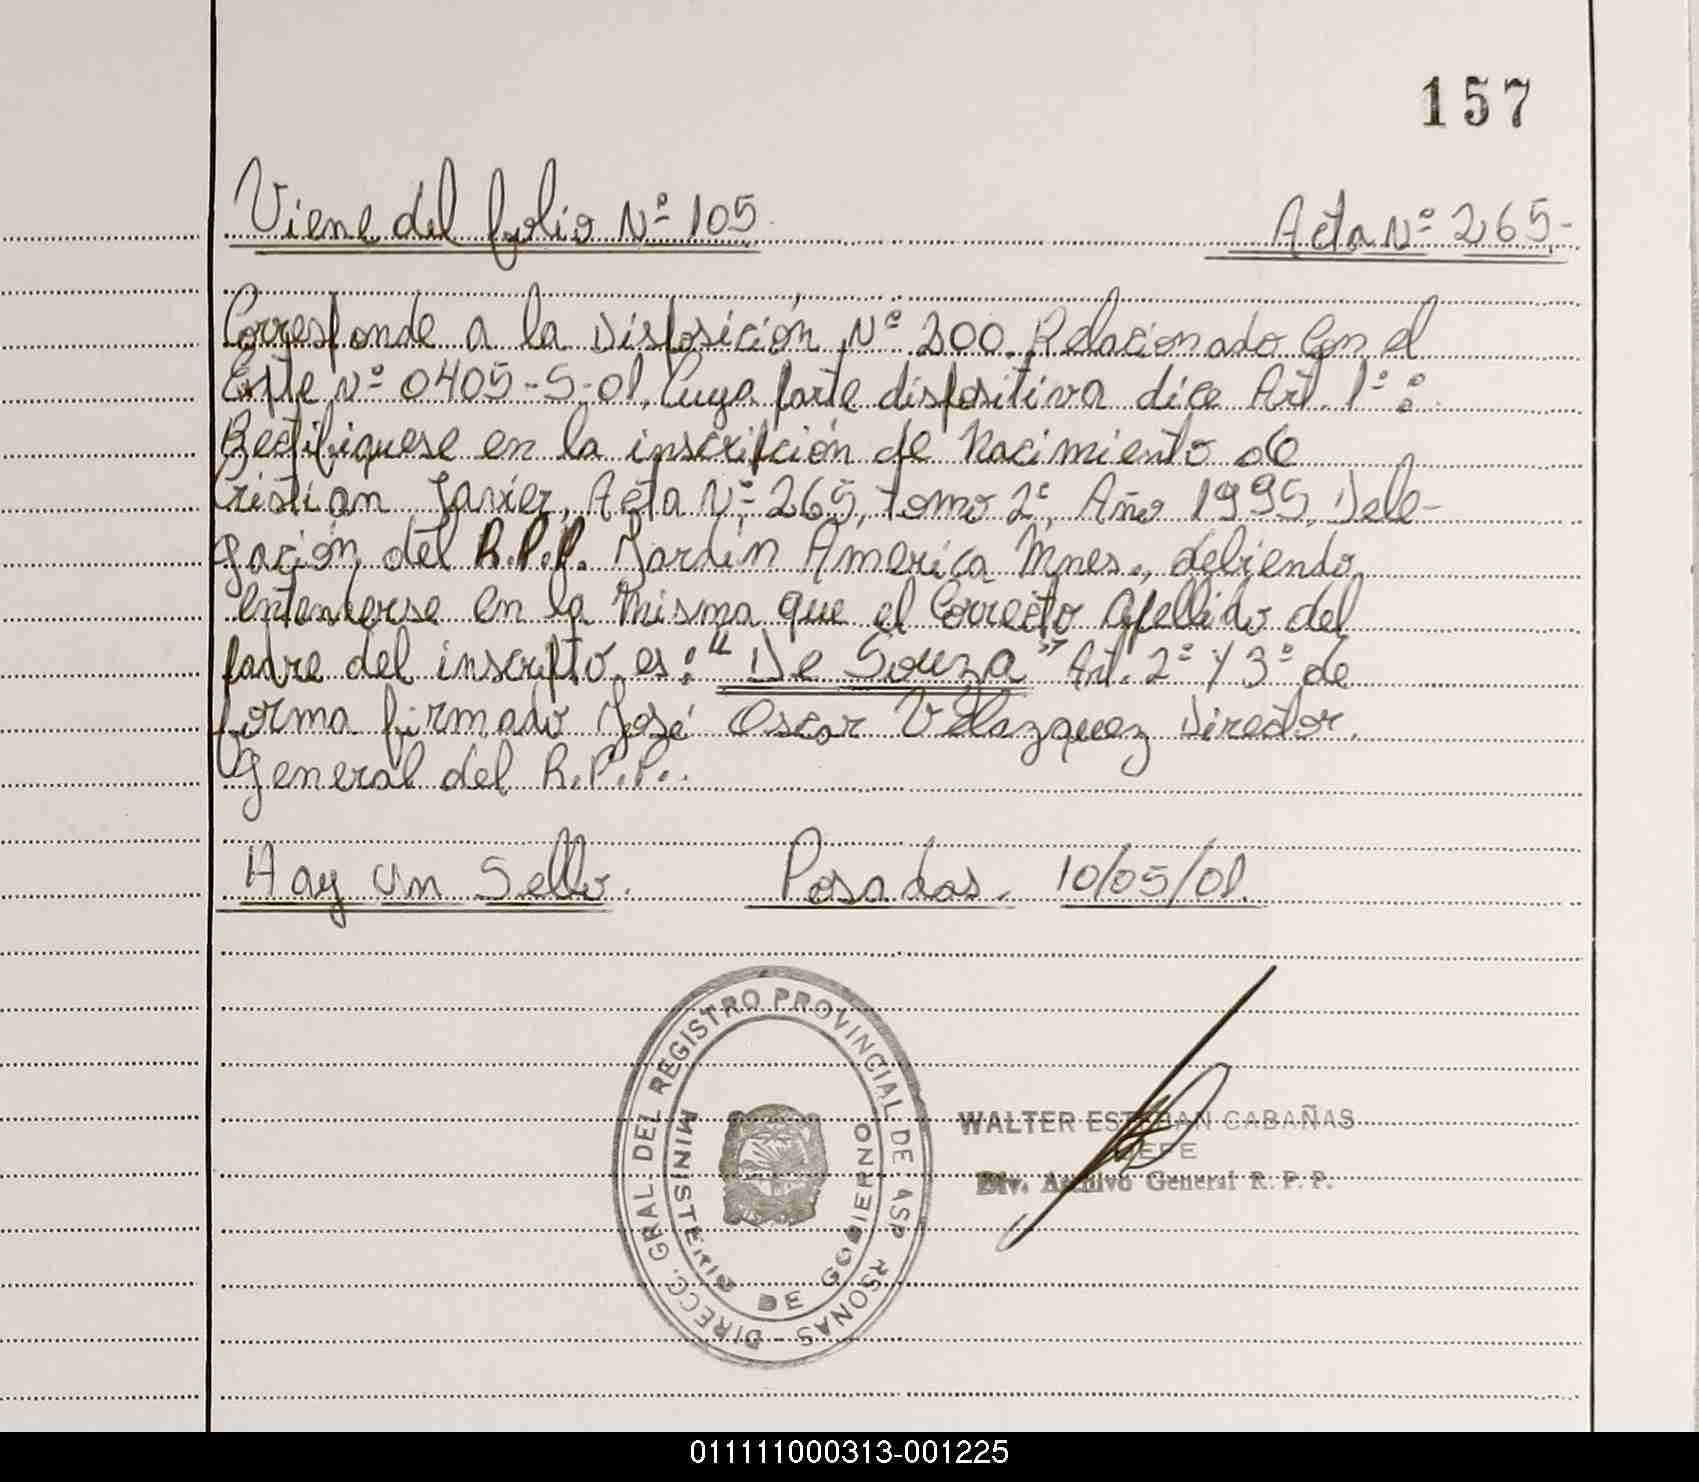 157
Viene del folio Nº 105. Acta Nº 265.-
Corresponde a la Disposición Nº 200. Relacionado con el
Expte Nº 0405-S-01, Cuya parte dispositiva dice Art. 1º :
Rectifiquese en la inscripción de Nacimiento de
Cristian Javier, Acta Nº 265, tomo 2º, Año 1995, Dele-
gación del R.P.P. Jardin America Mnes., debiendo
entenderse en la misma que el Correcto apellido del
padre del inscripto es: "De Souza" Art. 2º y 3º de
forma firmado José Oscar Velazquez Director
General del R.P.P..
Hay un Sello. Posadas. 10/05/01.
DIRECC. GRAL. DEL REGISTRO PROVINCIAL DE RSONAS -
MINISTERIO DE GOBIERNO
WALTER ESTEBAN CABAÑAS
JEFE
Div. Archivo General R. P. P.
011111000313-001225